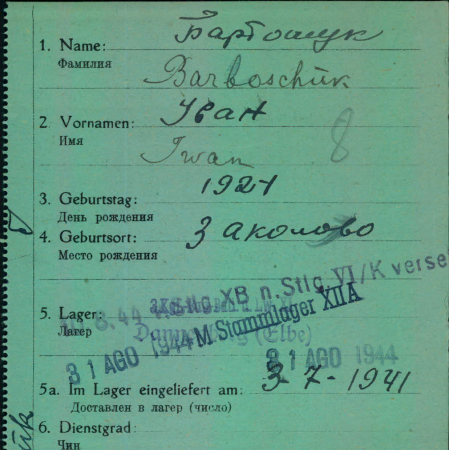 1. Name: Барбошук
Фамилия Barboschuk
2. Vornamen: Иван
Имя Iwan 8
3. Geburtstag: 1921
День рождения
4. Geburtsort: Заколово
Место рождения
Stlg. XB n. Stlg. VI/K verse
5. Lager: M Stammlager XIIA
Лагер (Elbe)
31 AGO 1944 31 AGO 1944
5a. Im Lager eingeliefert am: 3-7-1941
Доставлен в лагер (число)
6. Dienstgrad:
Чин